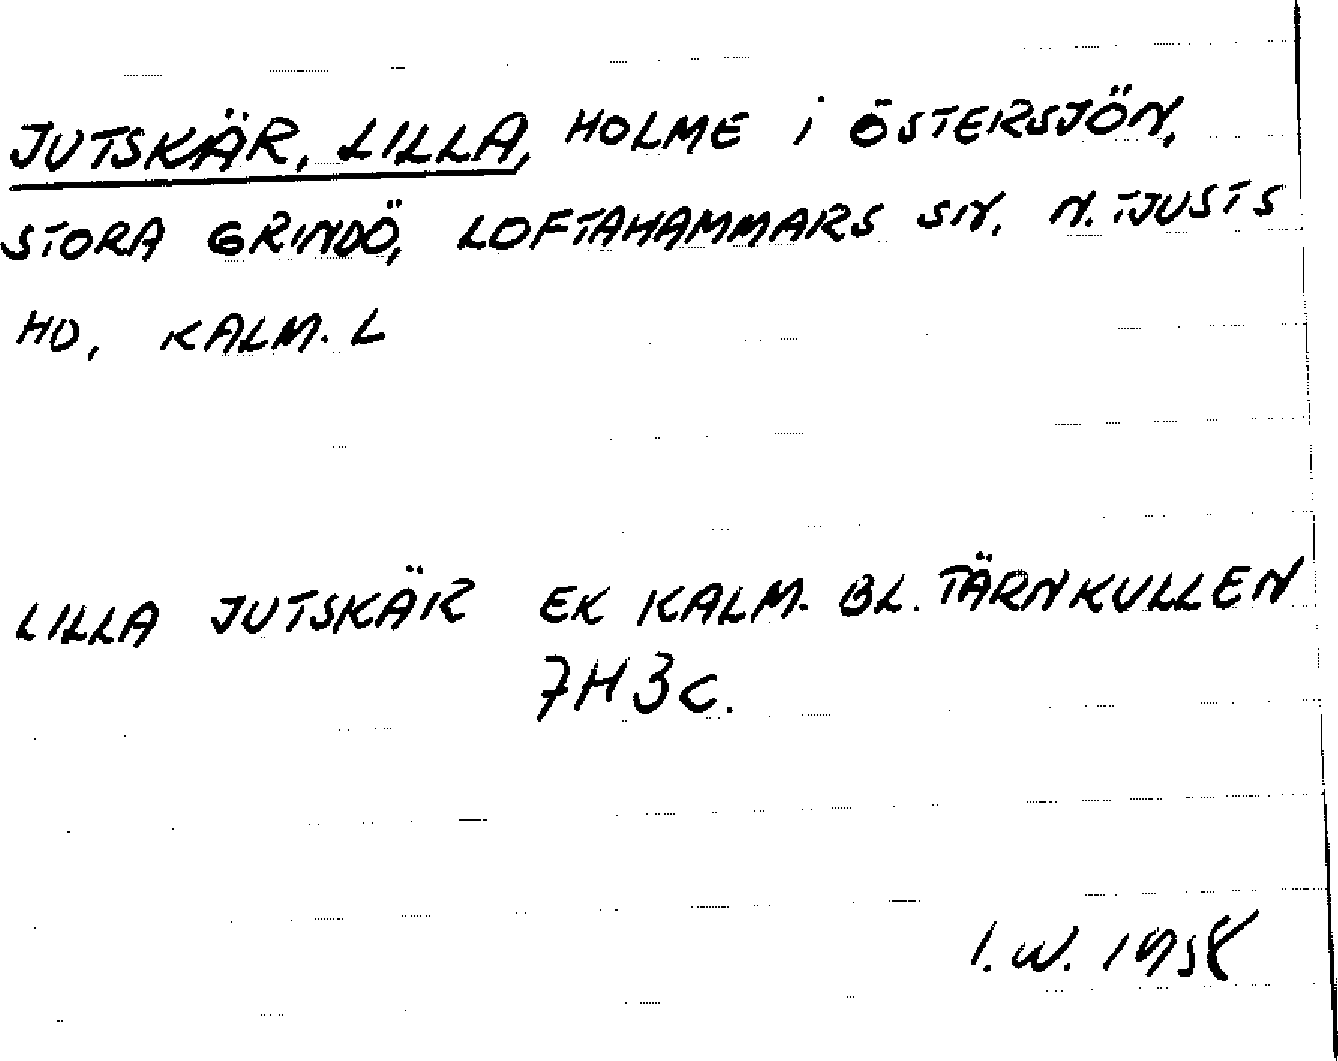 JUTSKÄR, LILLA, HOLME i ÖSTERSJÖN,
STORA GRINDÖ, LOFTAHAMMARS SN, N. TJUSTS
HD, KALM. L
LILLA JUTSKÄR EK KALM. BL. TÄRNKULLEN
7H 3c.
I. W. 1958